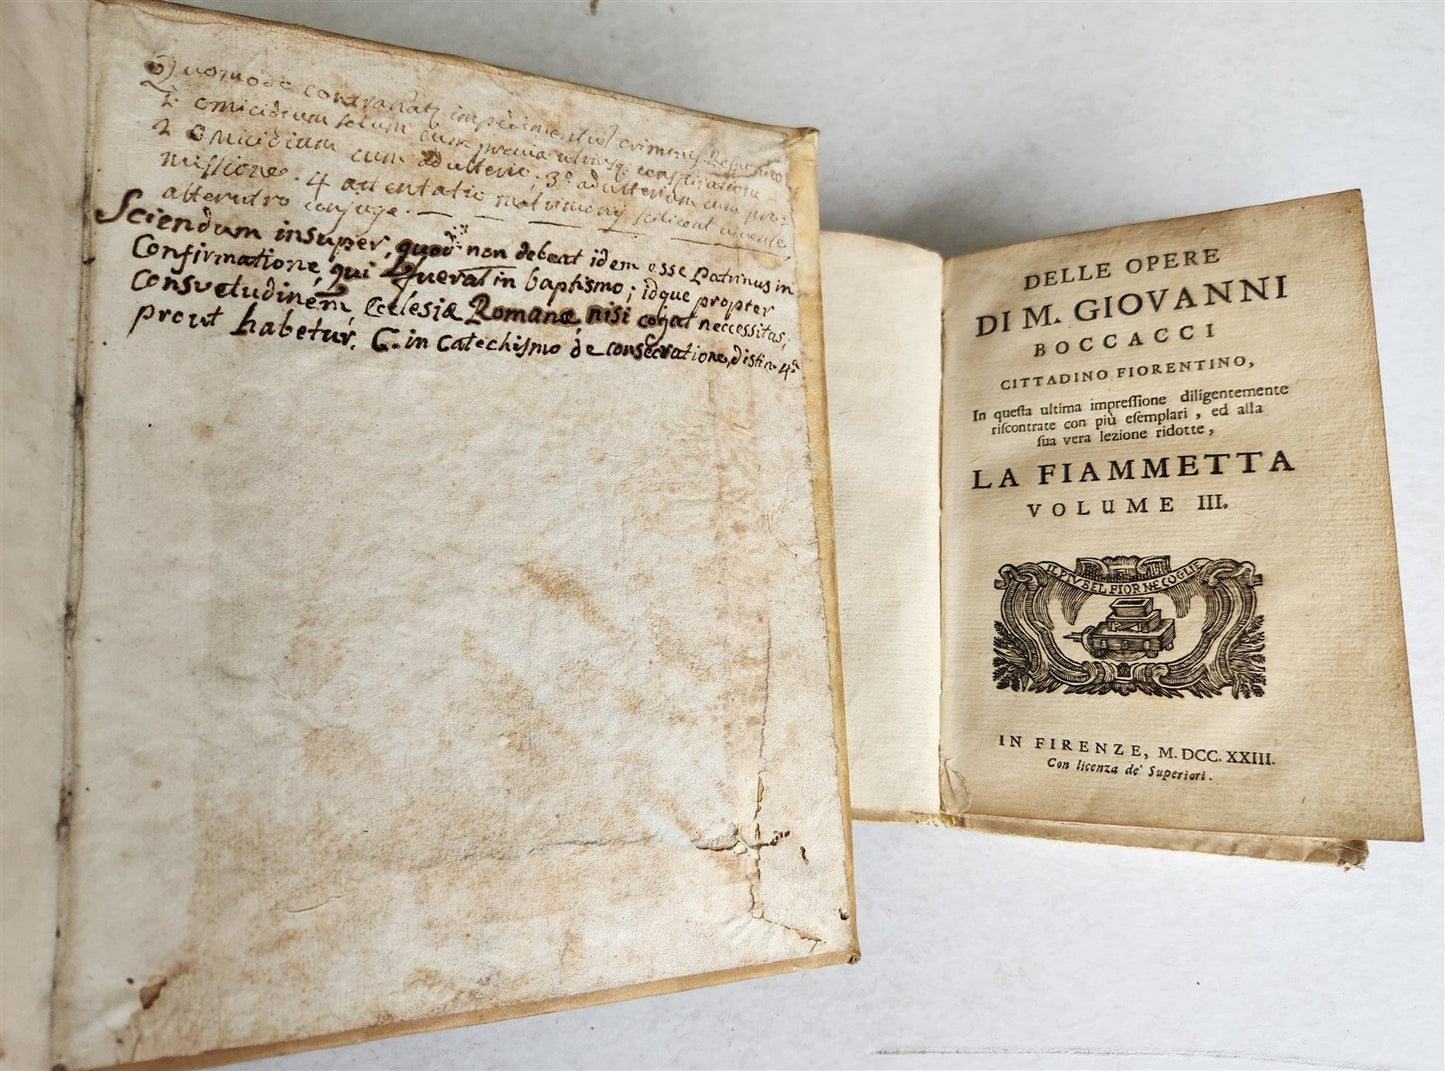 Quomodo contrahatq impedimentū criminis. Respondeo
1. omicidium solum cum prævia utriusq; conspiratione
2 omicidium cum adulterio, 3.º adulterium cum pro:
missione. 4 attentatio matrimonij scilicet vivente
alterutro conjuge.
Sciendum insuper, quod non debeat idem esse Patrinus in
Confirmatione, qui fuerat in baptismo; idque propter
consvetudinem, Ecclesiæ Romanæ, nisi cogat neccessitas,
prout habetur. C. in Catechismo de consecratione, distin 4ª
DELLE OPERE
DI M. GIOVANNI
BOCCACCI
CITTADINO FIORENTINO,
In queſta ultima impreſſione diligentemente
riſcontrate con più eſemplari, ed alla
ſua vera lezione ridotte,
LA FIAMMETTA
VOLUME III.
IL PIV BEL FIOR NE COGLIE
IN FIRENZE, M.DCC.XXIII.
Con licenza de' Superiori.